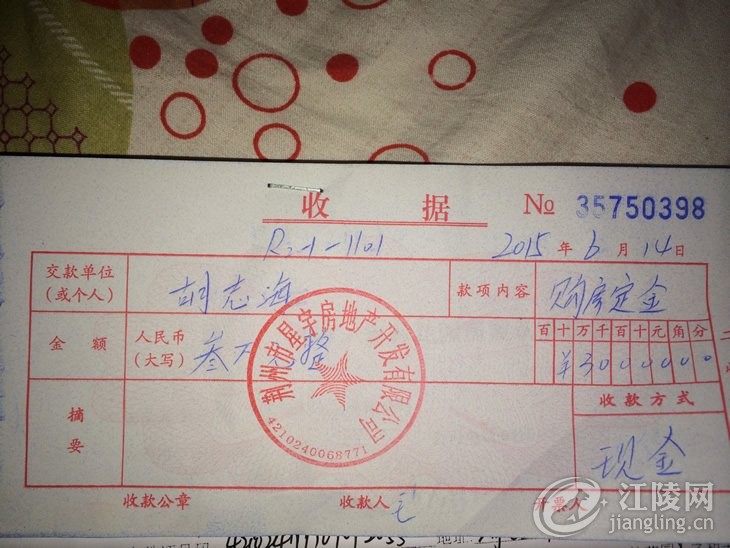 收 据 № 35750398
R2-1-1101 2015 年 6 月 14 日
交款单位 (或个人) 胡志海 款项内容 购房定金
金 额 人民币 (大写) 叁万 整 百 十 万 千 百 十 元 角 分
¥ 3 0 0 0 0 0 0
荆州市星宇房地产开发有限公司
4210240068771
摘 要 收款方式
现金
收款公章 收款人 毛 开票人
江陵网
jiangling.cn